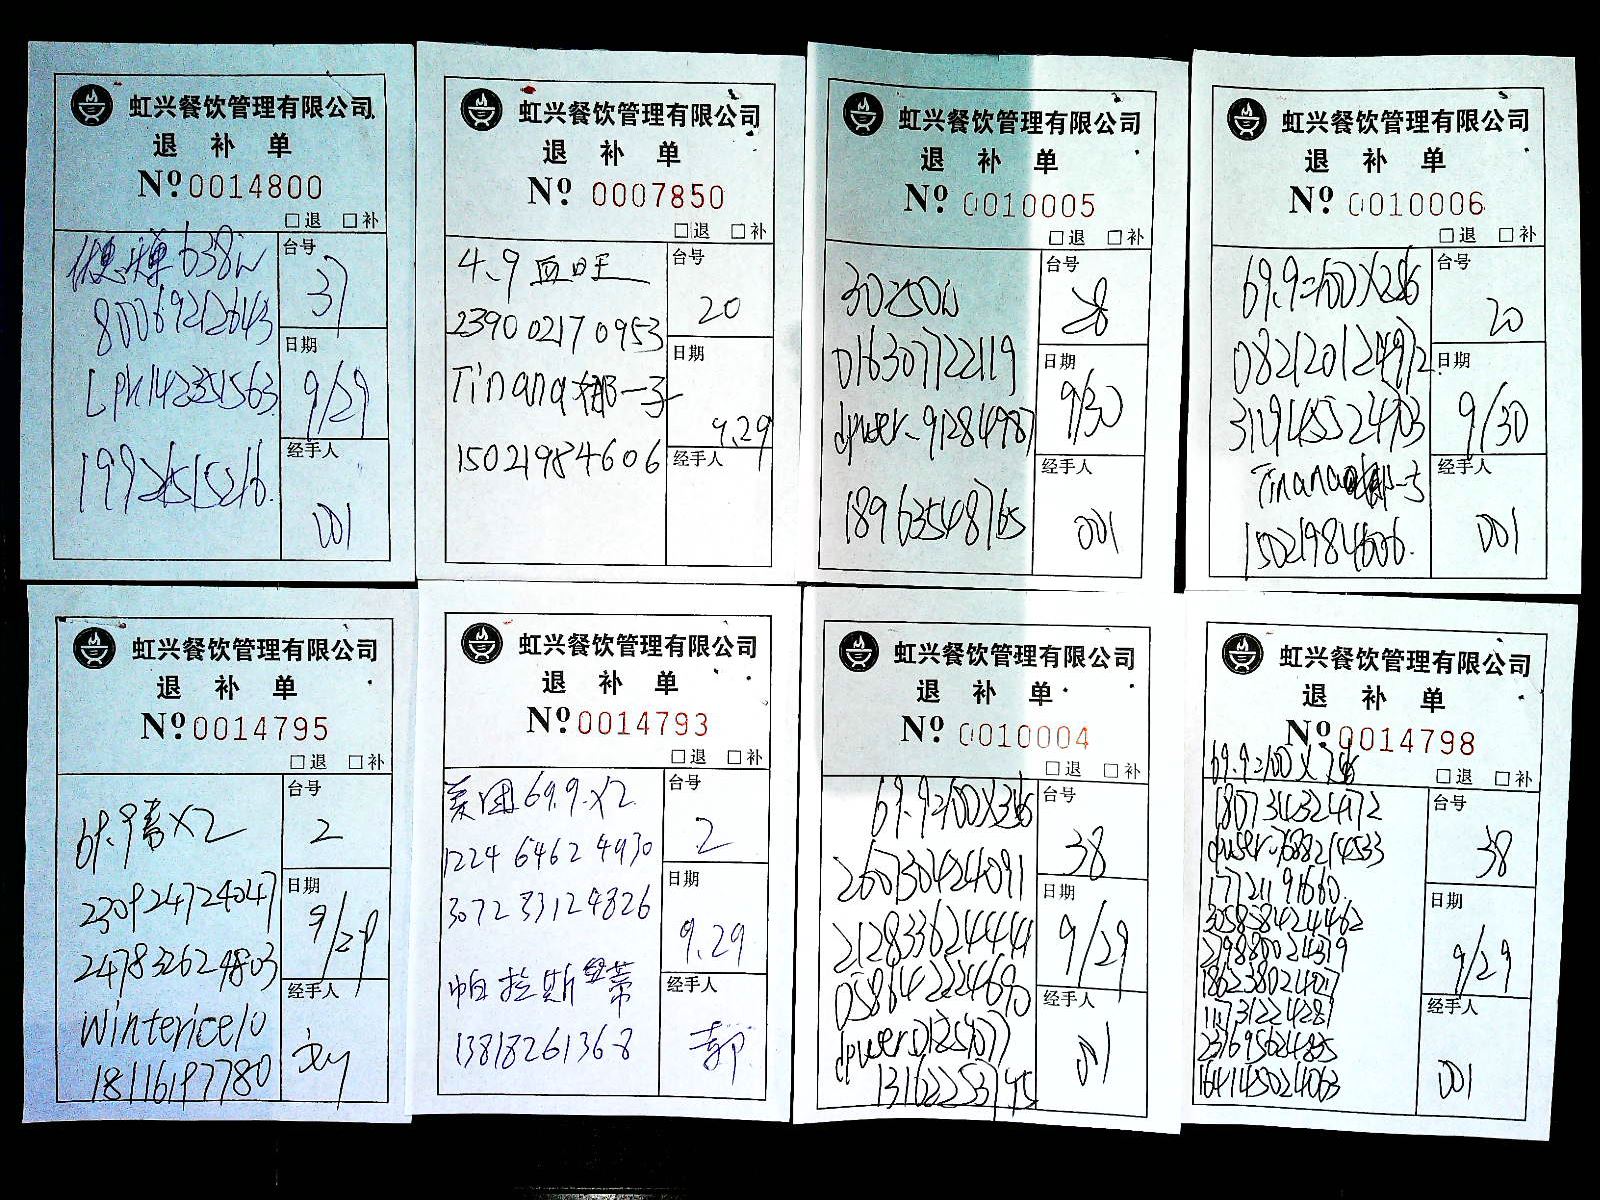 虹兴餐饮管理有限公司
退 补 单
Nº 0014800
□退 □补
638w
80069212643
台号
37
日期
9/29
经手人
001
虹兴餐饮管理有限公司
退 补 单
Nº 0007850
□退 □补
4.9 血旺
2390 0217 0953
Tinana娜一子
15021984606
台号
20
日期
9.29
经手人
虹兴餐饮管理有限公司
退 补 单
Nº 0010005
□退 □补
30250w
016307722119
dpuser-91284987
18963548765
台号
28
日期
9/30
经手人
001
虹兴餐饮管理有限公司
退 补 单
Nº 0010006
□退 □补
69.9=100X2张
082120124972
311945524703
15021984606.
台号
20
日期
9/30
经手人
001
虹兴餐饮管理有限公司
退 补 单
Nº 0014795
□退 □补
69.9套X2
230924724047
247832624803
Winterice10
18116197780
台号
2
日期
9/29
经手人
虹兴餐饮管理有限公司
退 补 单
Nº 0014793
□退 □补
美团69.9.X2
1224 6462 4930
3072 3312 4826
帕拉斯蒂
13818261368
台号
2
日期
9.29
经手人
郭
虹兴餐饮管理有限公司
退 补 单
Nº 0010004
□退 □补
69.9=100X3张
260730424091
212833624444
058642224690
台号
38
日期
9/29
经手人
001
虹兴餐饮管理有限公司
退 补 单
Nº 0014798
□退 □补
69.9=100X7张
180734324472
17721191660.
305858424462
298880024319
186238024017
111731224281
237695624835
164145024063
台号
38
日期
9/29
经手人
001